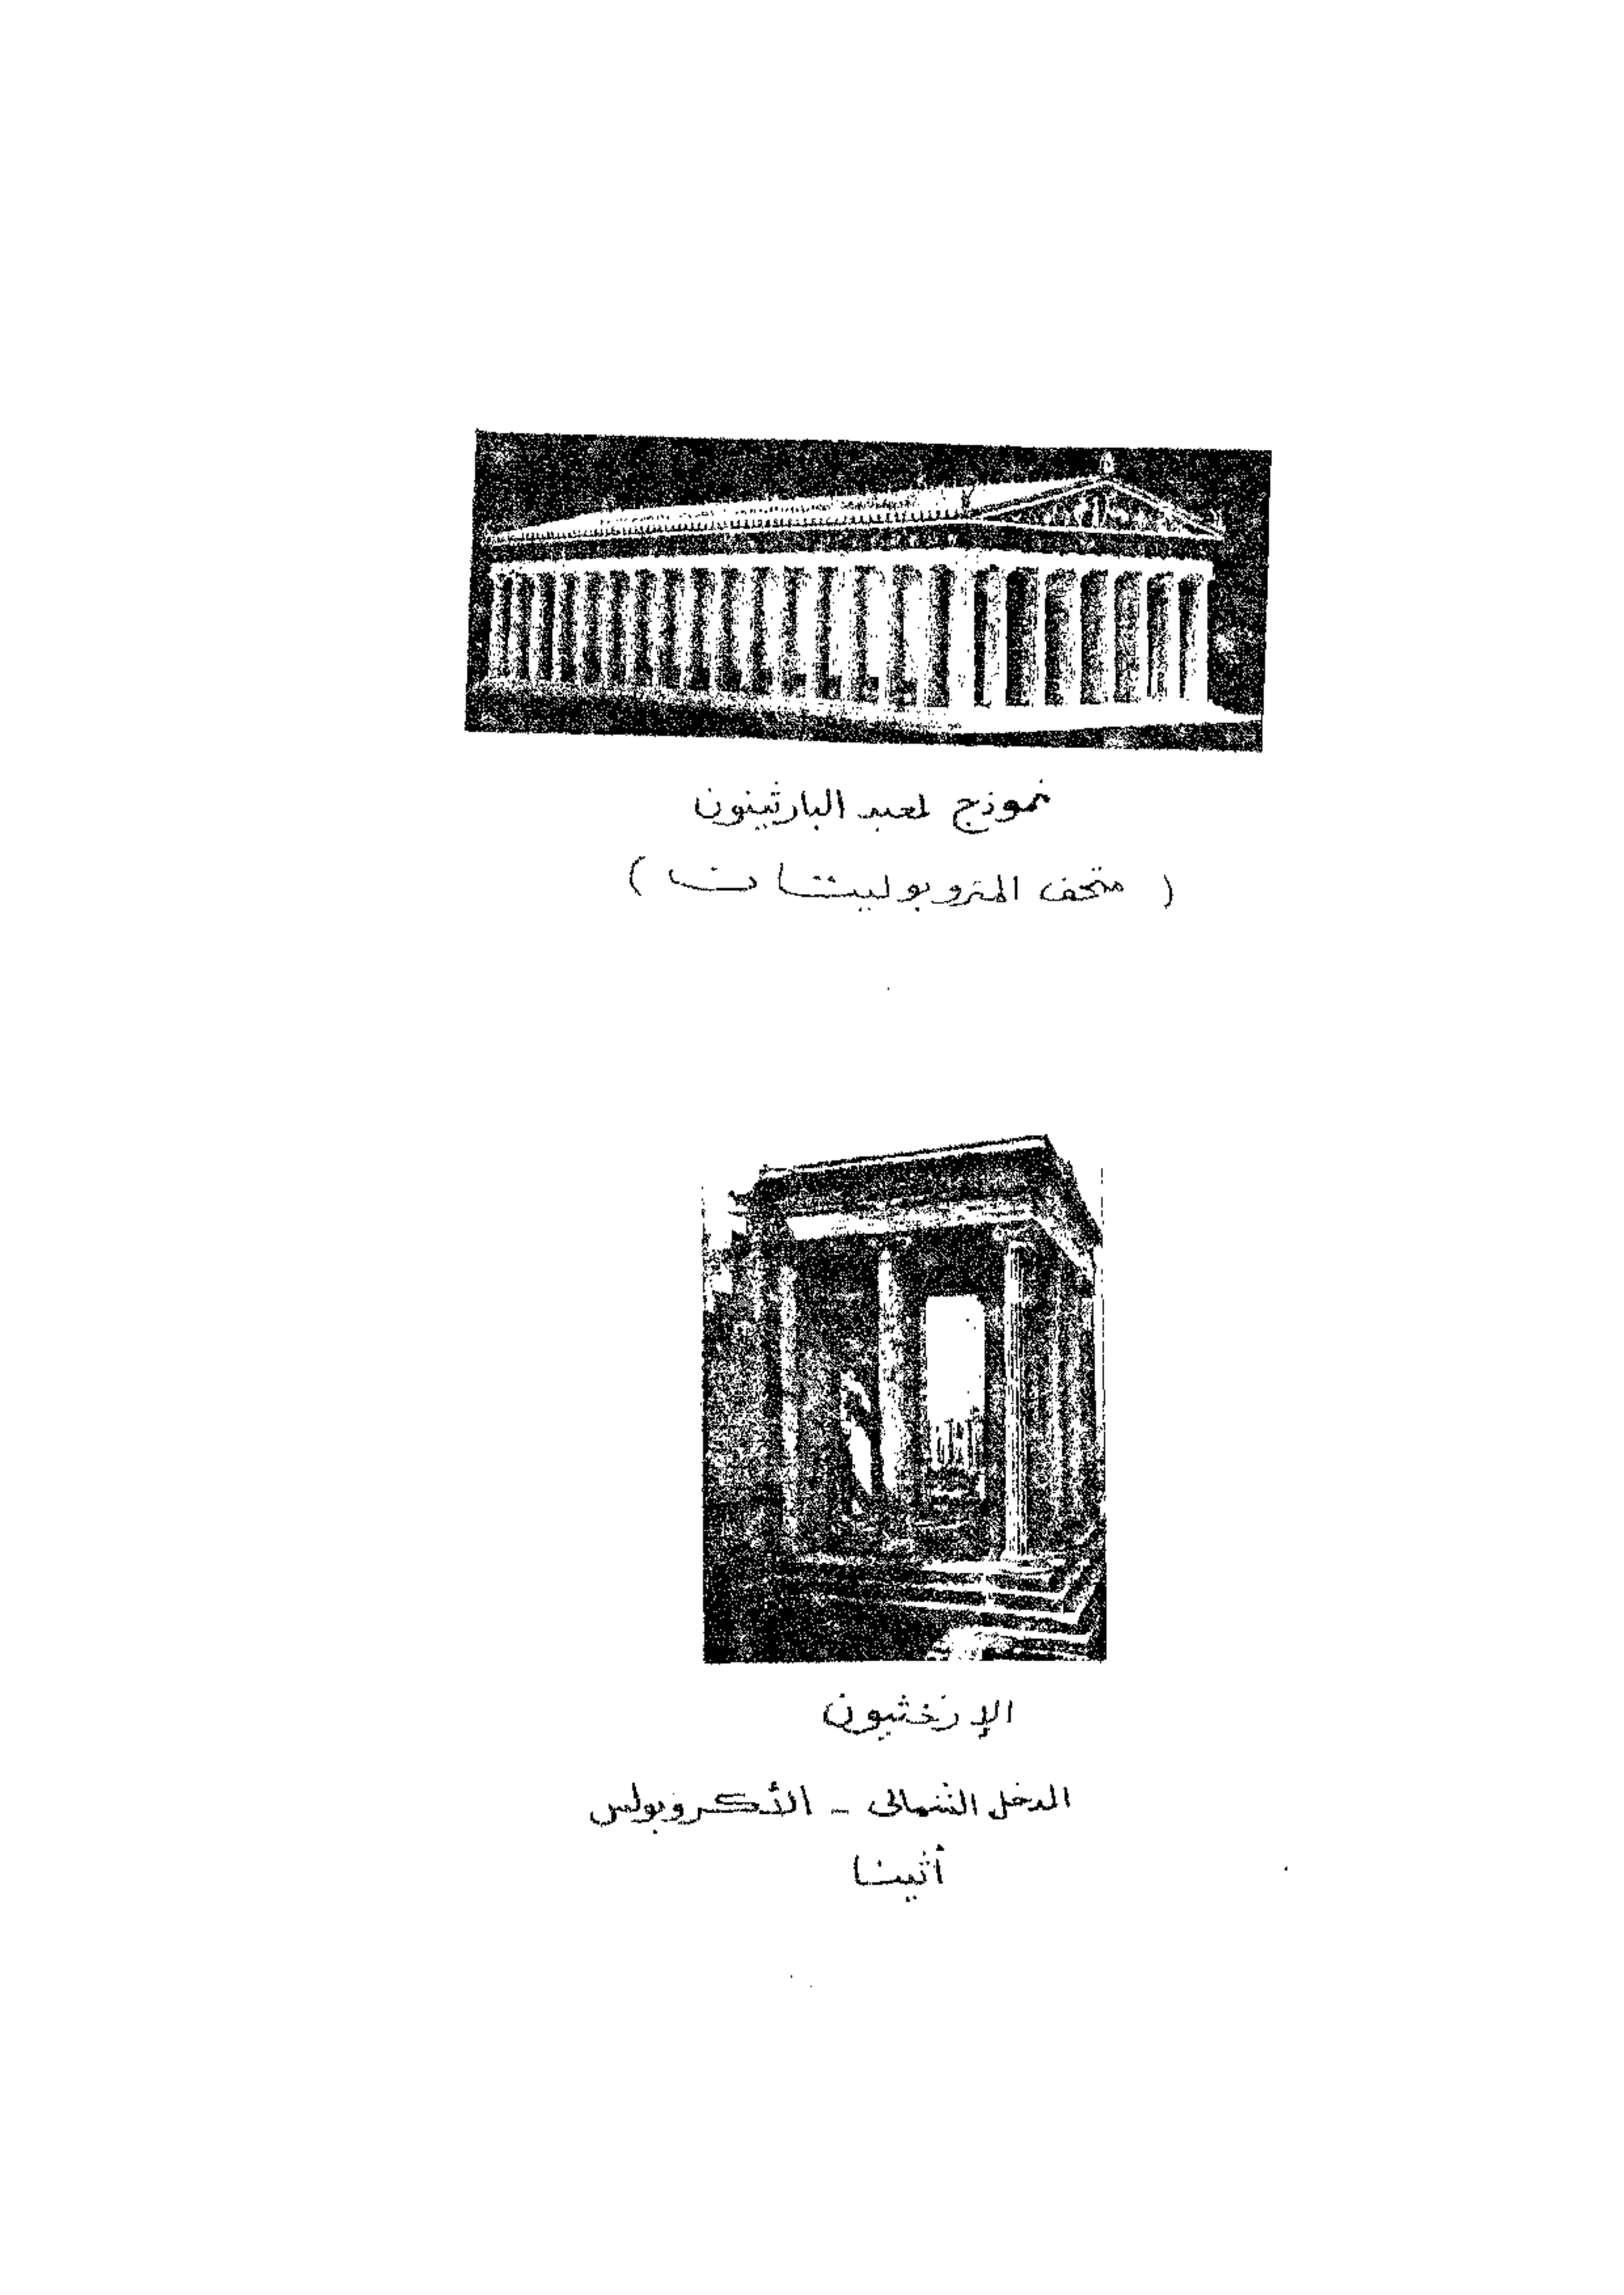 نموذج لمعبد البارثينون
( متحف المتروبوليتان )
الإرخثيون
المدخل الشمالى - الأكروبولس
أثينا